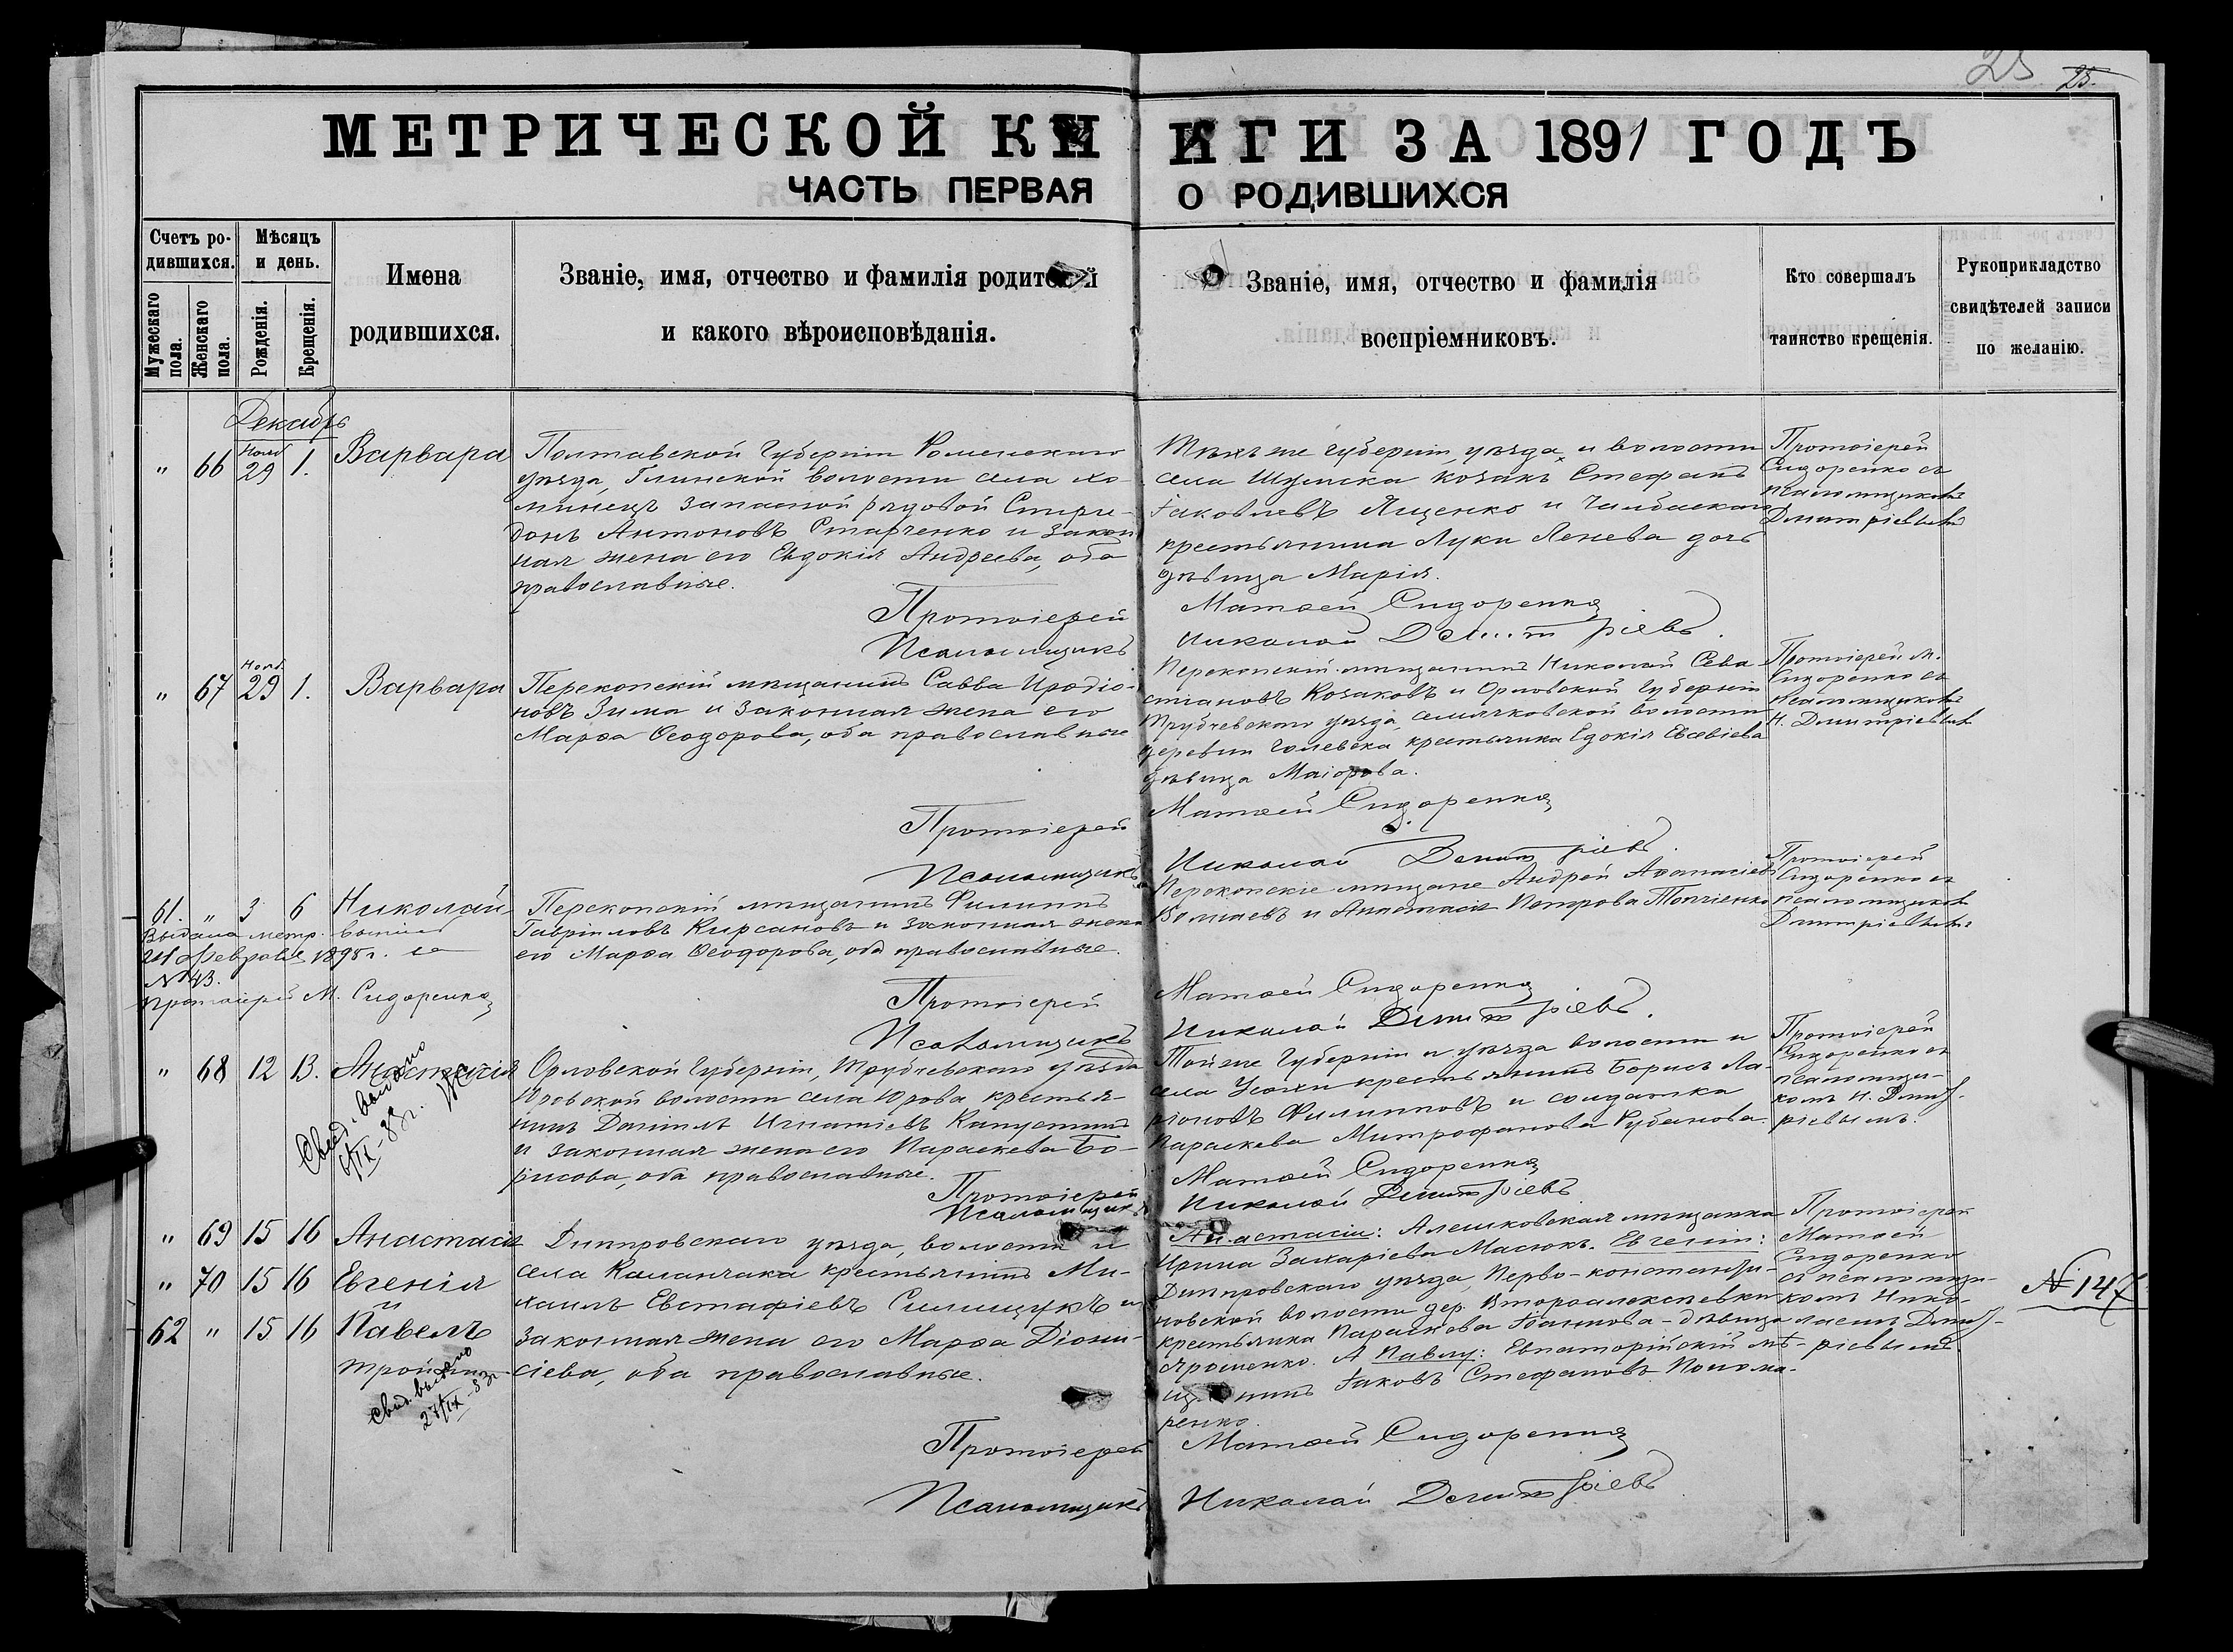 25 25.
МЕТРИЧЕСКОЙ КНИГИ ЗА 1891 ГОДЪ
ЧАСТЬ ПЕРВАЯ О РОДИВШИХСЯ
Счетъ ро-
дившихся.
Мужескаго пола.
Женскаго пола.
Мѣсяцъ
и день.
Рожденія.
Крещенія.
Имена
родившихся.
Званіе, имя, отчество и фамилія родителей
и какого вѣроисповѣданія.
Званіе, имя, отчество и фамилія
воспріемниковъ.
Кто совершалъ
таинство крещенія.
Рукоприкладство
свидѣтелей записи
по желанію.
Декабрь
" 66 Нояб 29 1. Варвара
Полтавской Губерніи Роменскаго
уѣзда, Глинской волости села Хо-
минецъ запасной рядовой Спири-
донъ Антоновъ Старченко и закон
ная жена его Евдокія Андреева, оба
православные.
Протоіерей
Псаломщикъ
Тѣхъ же губерніи, уѣзда и волости
села Шумска козакъ Стефанъ
Іаковлевъ Яценко и Чалбаскаго
крестьянина Луки Ленева дочь
дѣвица Марія.
Матѳей Сидоренко
Николай Димитріевъ.
Протоіерей
Сидоренко съ
псаломщикомъ
Дмитріевымъ
" 67 Нояб. 29 1. Варвара
Перекопскій мѣщанинъ Савва Иродіо-
новъ Зима и законная жена его
Марѳа Ѳеодорова, оба православные
Протоіерей
Псаломщикъ
Перекопскій мѣщанинъ Николай Сева-
стіановъ Козаковъ и Орловской Губерніи
Трубчевскаго уѣзда, семячковской волости
деревни Голевска крестьянка Едокія Евсевіева
дѣвица Маіорова.
Матѳей Сидоренко
Николай Димитріевъ.
Протоіерей М.
Сидоренко съ
псаломщикомъ
Н. Дмитріевымъ
61. " 3 6 Николай
Выдана метр. выпись
21 Февраля 1895 г. за
№ 43.
Протоіерей М. Сидоренко
Перекопскій мѣщанинъ Филиппъ
Гавріиловъ Кирсановъ и законная жена
его Марѳа Ѳеодорова, оба православные.
Протоіерей
Псаломщикъ
Перекопскіе мѣщане Андрей Аѳанасіевъ
и Анастасія Петрова
Матѳей Сидоренко
Николай Димитріевъ.
Протоіерей
Сидоренко съ
псаломщикомъ
Дмитріевымъ
" 68 12 13. Анастасія
Свид. выдано
6/IX-83г.
Орловской Губерніи, Трубчевскаго уѣзда
Юровской волости села Юрова крестья-
нинъ Даніилъ Игнатіевъ Капустинъ
и законная жена его Параскева Бо-
рисова, оба православные.
Протоіерей
Псаломщикъ
Той же Губерніи и уѣзда волости и
села Усохи крестьянинъ Борисъ Ла-
ріоновъ Филипповъ и солдатка
Параскева Митрофанова Рубанова.
Матѳей Сидоренко
Николай Димитріевъ
Протоіерей
Сидоренко съ
псаломщи-
комъ Н. Дмит-
ріевымъ.
" 69 15 16 Анастасія
" 70 15 16 Евгенія
и
62 " 15 16 Павелъ
тройни
Свид. выдано
27/IX-83г.
Днѣпровскаго уѣзда, волости и
села Каланчака крестьянинъ Ми-
хаилъ Евстафіевъ Силищукъ и
законная жена его Марѳа Діони-
сіева, оба православные.
Протоіерей
Псаломщикъ
Анастасіи: Алешковская мѣщанка
Ирина Захаріева Масюкъ. Евгеніи:
Днѣпровскаго уѣзда, Перво-константи-
новской волости дер. Второалексѣевки
крестьянка Параскева Іоаннова - дѣвица
Ярошенко. А Павлу: Евпаторійскій мѣ-
щанинъ Іаковъ Стефановъ Понома-
ренко.
Матѳей Сидоренко
Николай Димитріевъ
Протоіерей
Матѳей
Сидоренко
съ псаломщи-
комъ Нико-
лаемъ Дмит-
ріевымъ
№ 147